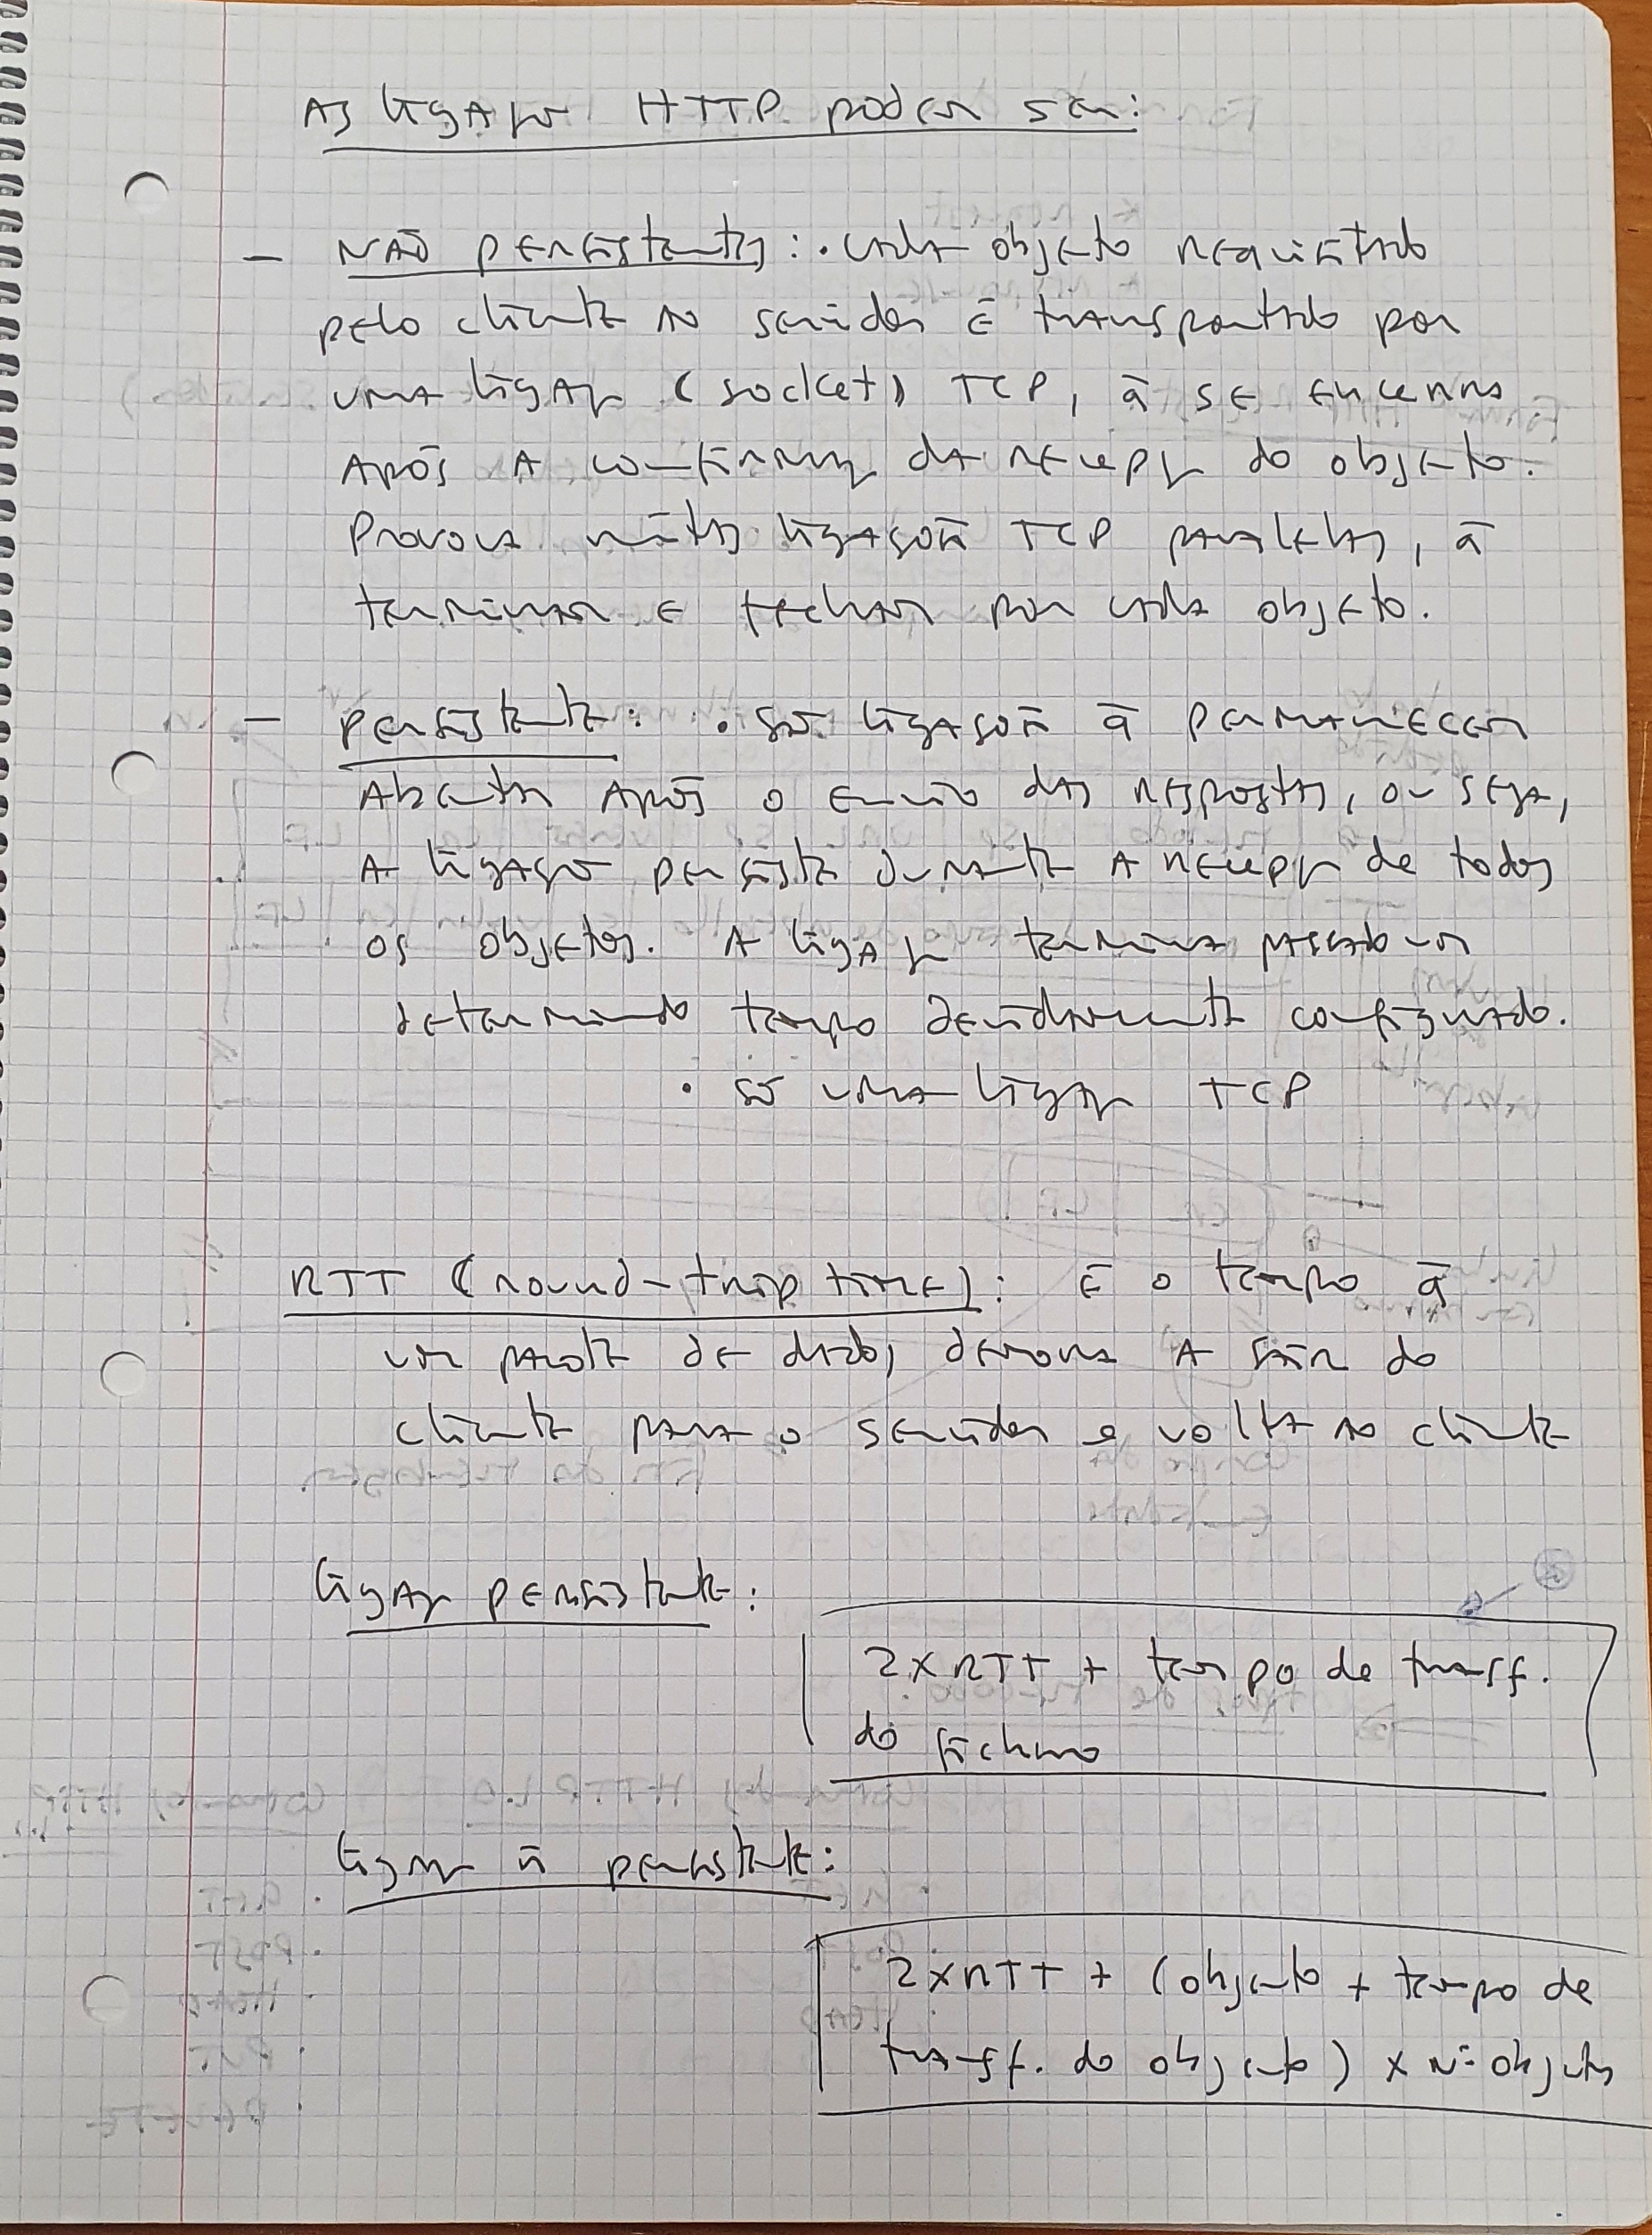 As ligação HTTP podem ser:
- Não persistentes: • cada objeto requisitado
pelo cliente ao servidor é transportado por
uma ligaç (socket) TCP, q̄ se encerra
após a confirmaç da recepç do objeto.
Provoca muitas ligações TCP paralelas, q̄
terminam e fecham por cada objeto.
- persistente: • são ligações q̄ permanecem
Abertas após o envio das respostas, ou seja,
A ligação persiste durante a recepç de todos
os objetos. A ligaç termina passado um
determinado tempo devidamente configurado.
• só uma ligaç TCP
RTT (round-trip time): é o tempo q̄
um pacote de dados demora a sair do
cliente para o servidor e volta ao cliente
ligaç persistente:
2xRTT + tempo de transf.
do ficheiro
ligaç ñ persistente:
2xRTT + (objeto + tempo de
transf. do objeto) x Nº objetos